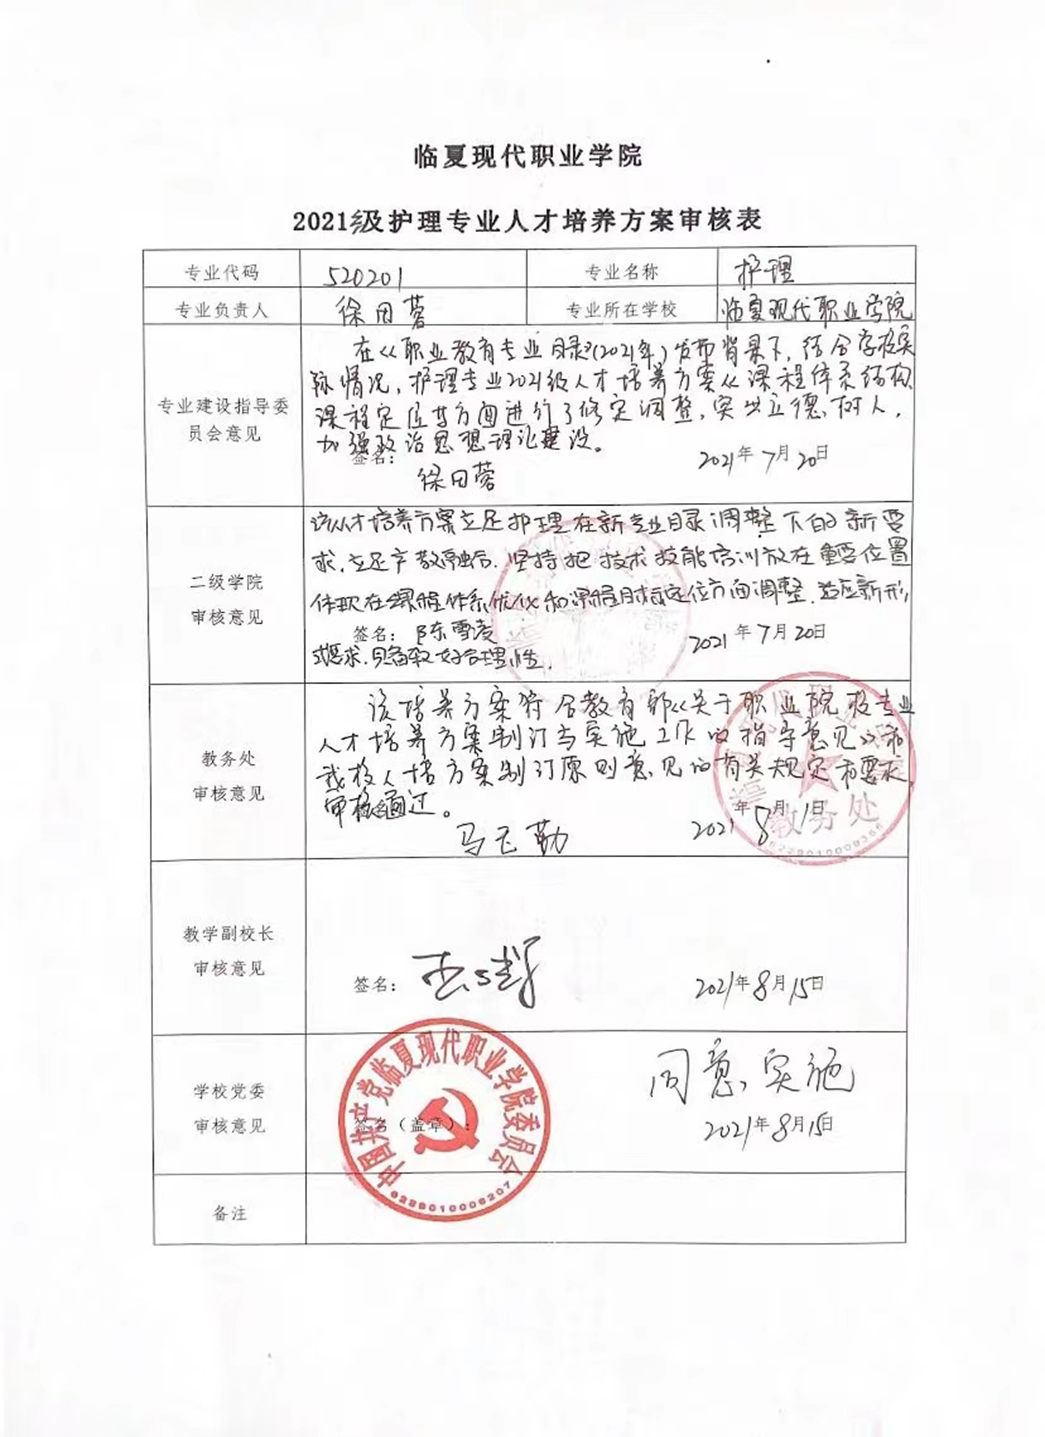 临夏现代职业学院
2021级护理专业人才培养方案审核表
专业代码 520201 专业名称 护理
专业负责人 徐田蓉 专业所在学校 临夏现代职业学院
专业建设指导委
员会意见
在《职业教育专业目录》(2021年)发布背景下,结合学校实
际情况,护理专业2021级人才培养方案从课程体系结构
课程定位等方面进行了修定调整,突出立德树人,
加强政治思想理论建设。
签名:
徐田蓉
2021年7月20日
二级学院
审核意见
该人才培养方案立足护理在新专业目录调整下的新要
求,立足产教融合,坚持把技术技能培训放在重要位置
体现在课程体系优化和课程目标定位方面调整,适应新形
签名: 陈雪凌 2021年7月20日
式要求,具备较好合理性.
教务处
审核意见
该培养方案符合教育部《关于职业院校专业
人才培养方案制订与实施工作的指导意见》和
我校人培方案制订原则意见的有关规定和要求
审核通过。
2021年8月1日
教务处
6229010009366
教学副校长
审核意见
签名: 2021年8月15日
学校党委
审核意见
同意实施
签名(盖章): 2021年8月15日
中国共产党临夏现代职业学院委员会
6229010006207
备注